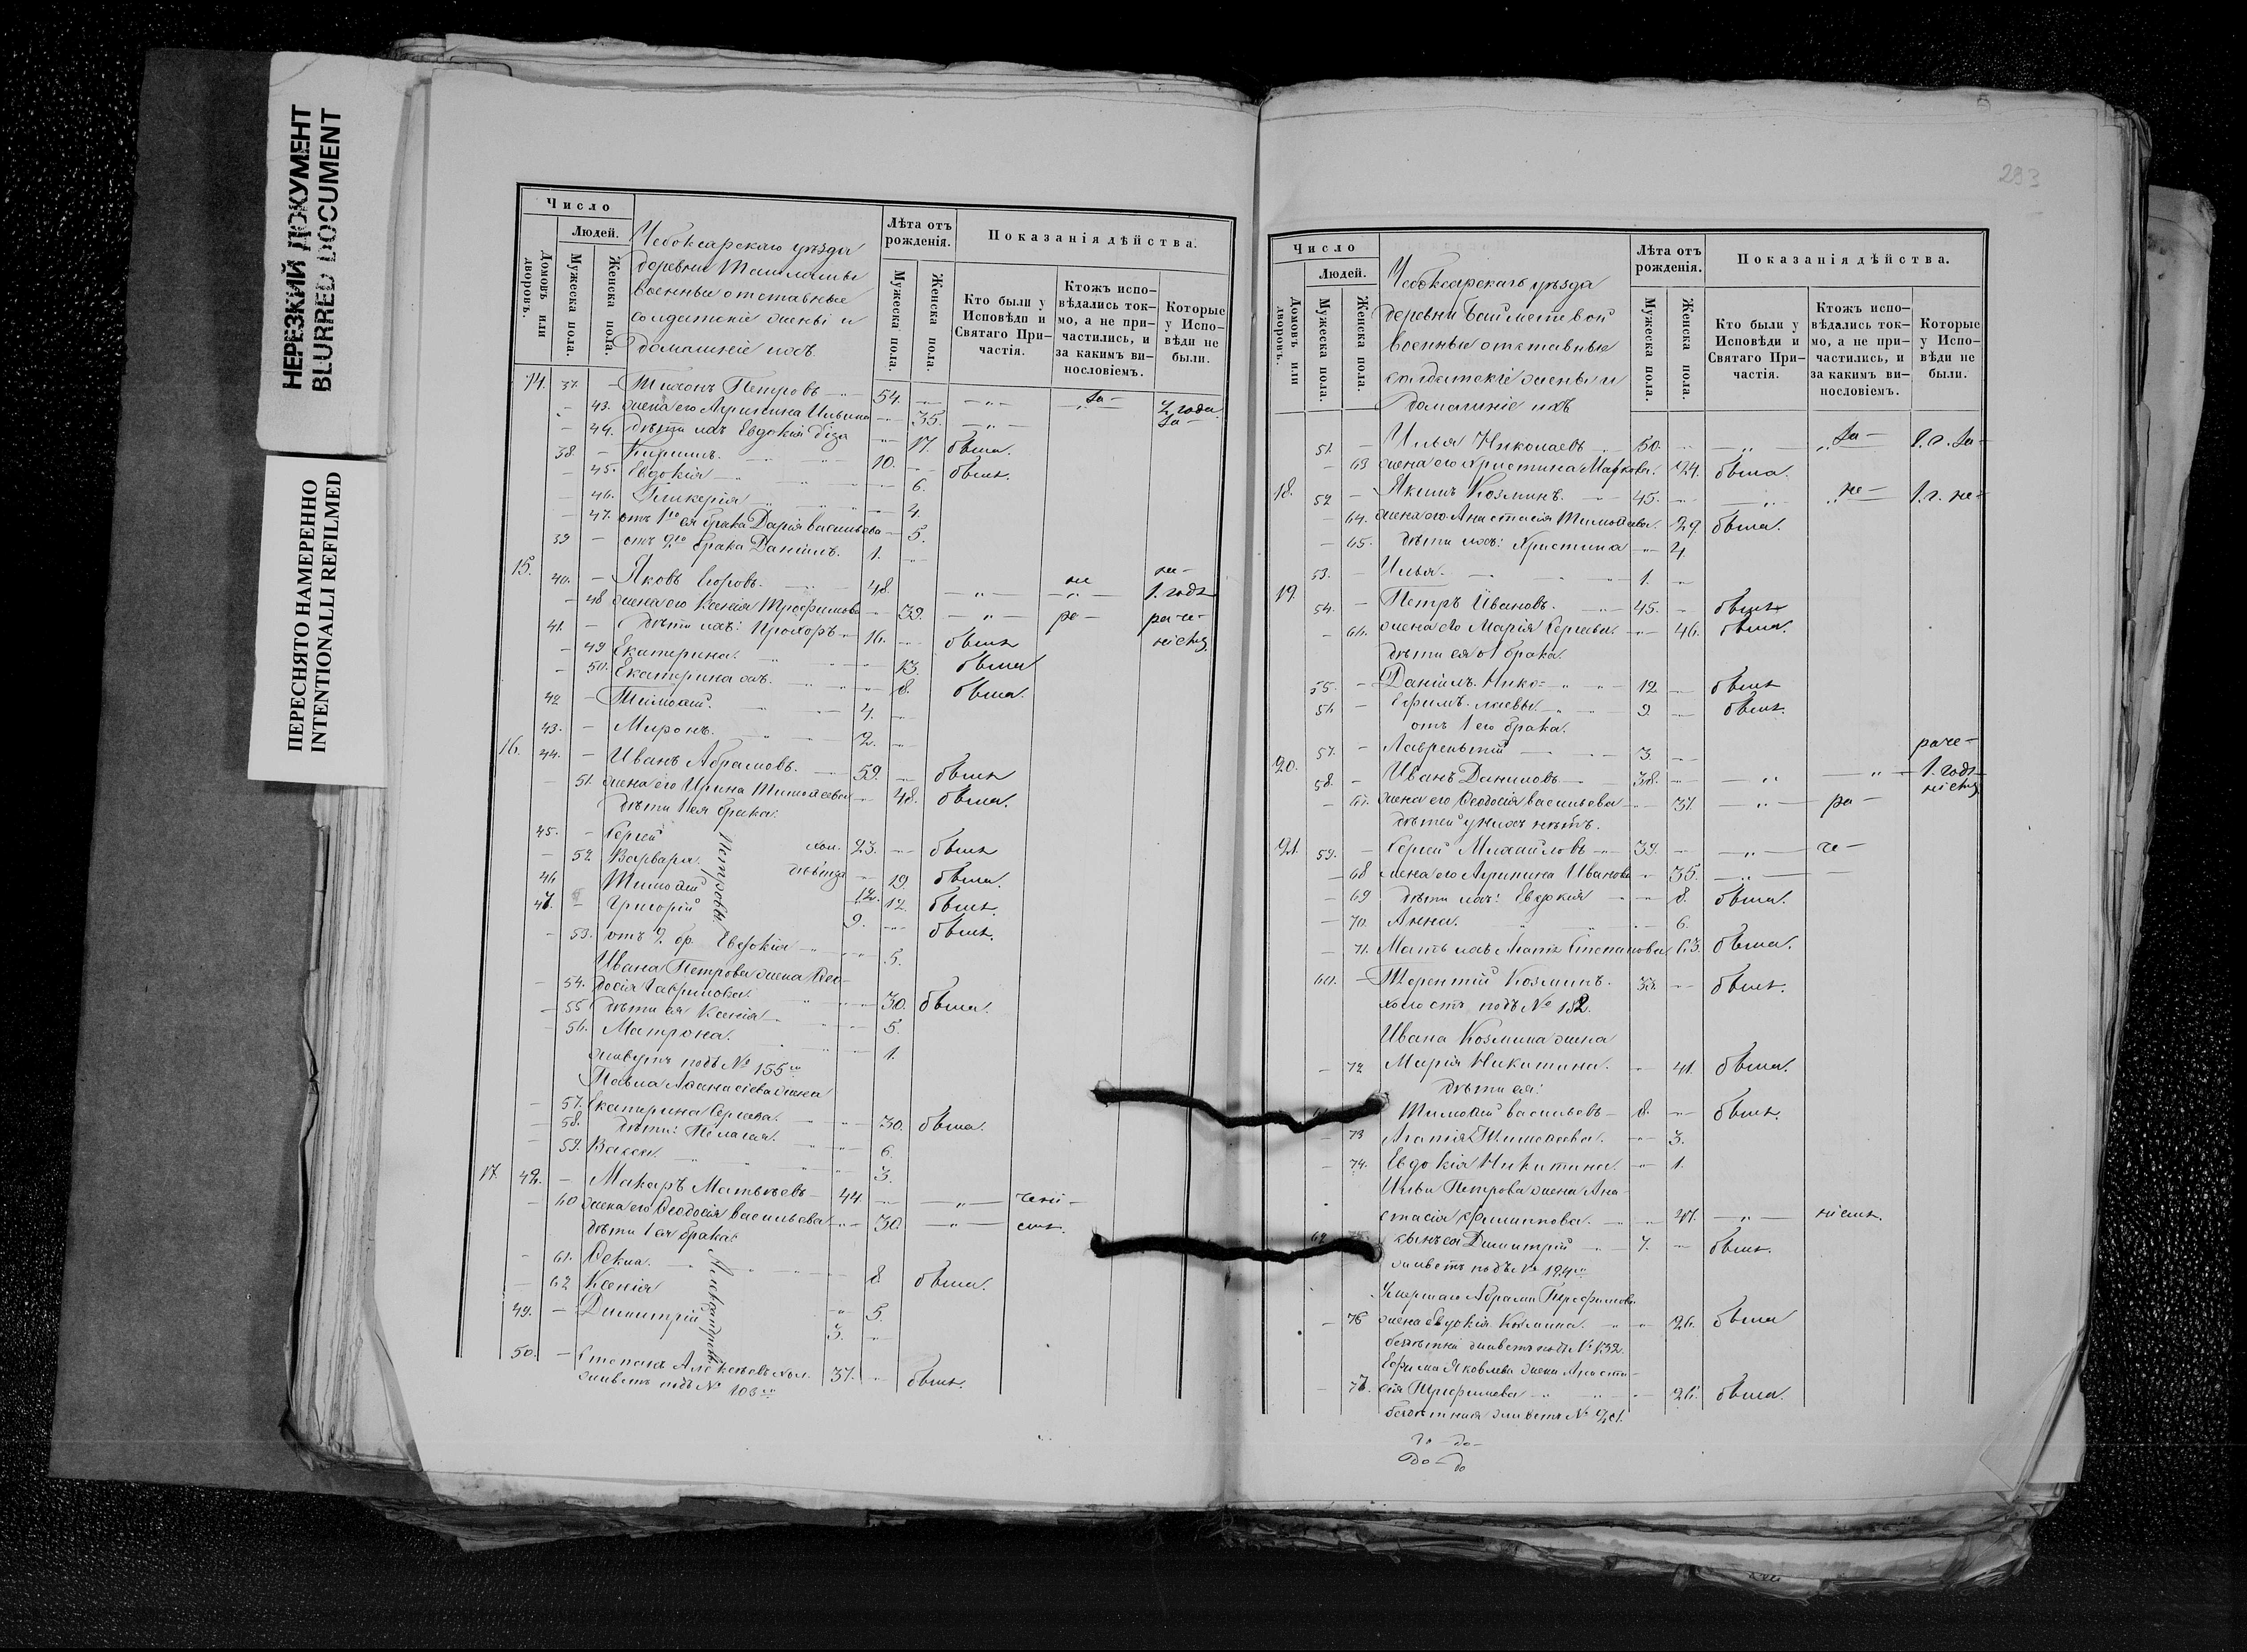 НЕРЕЗКИЙ ДОКУМЕНТ
BLURRED DOCUMENT
ПЕРЕСНЯТО НАМЕРЕННО
INTENTIONALLI REFILMED
Число
Людей.
Домовъ или дворовъ.
Мужеска пола.
Женска пола.
Чебоксарскаго уѣзда
деревни
военные отставные
солдатскіе жены и
домашніе ихъ
Лѣта отъ рожденія.
Мужеска пола.
Женска пола.
Показанія дѣйства.
Кто были у Исповѣди и Святаго Причастія.
Ктожъ исповѣдались токмо, а не причастились, и за какимъ винословіемъ.
Которые у Исповѣди не были.
14. 37. — Петровъ 54. за—
43. жена его Агрипина Ильина 35. за—
44. дѣти ихъ Евдокія 17. была.
38 — Кирилъ. 10. былъ.
45. Евдокія 6.
46. Гликерія 4.
47. отъ 1го ея брака Дарія Васильева 5.
39 — отъ 2го брака Даніилъ. 1.
15. 40. — Яковъ Егоровъ. 48. не не— 1. годъ
48 жена его Ксенія Трофимова 39. ра— раче—
41. — дѣти ихъ: Прохоръ 16. былъ
49 Екатерина. 13. была
50. Екатерина 8. была.
42 — Тимоѳей. 4.
43. — Миронъ. 2.
16. 44. — Иванъ Абрамовъ. 59. былъ
51. жена его Ирина Тимоѳеева 48. была.
дѣти 1 ея брака:
45. — Сергей хол. 23. былъ
52. Варвара. дѣвица 19. была.
46 Тимоѳей 12. 12. былъ.
47. — Григорій 9. былъ.
Петровы
53. отъ 2. бр. Евдокія 5.
Ивана Петрова жена Ѳео-
54. досія Гаврилова. 30. была.
55 дѣти ея Ксенія 5.
56. Матрона. 1.
живутъ подъ № 155
Павла Аѳанасіева жена
57. Екатерина Сергеева. 30. была.
58. дѣти: Пелагея. 6.
59. Васса. 3.
17. 48. — Макаръ Матвѣевъ 44.
60 жена его Ѳеодосія Васильева 30.
дѣти 1 ея брака:
61. Ѳекла. 8. была.
62 Ксенія 5.
49. — Димитрій 3.
Александровы
50. — Степанъ Алексѣевъ хол. 37. былъ.
живетъ подъ № 106
293
Число
Людей.
Домовъ или дворовъ.
Мужеска пола.
Женска пола.
Чебоксарскаго уѣзда
деревни
военные отставные
солдатскіе жены и
домашніе ихъ
Лѣта отъ рожденія.
Мужеска пола.
Женска пола.
Показанія дѣйства.
Кто были у Исповѣди и Святаго Причастія.
Ктожъ исповѣдались токмо, а не причастились, и за какимъ винословіемъ.
Которые у Исповѣди не были.
51. — Илья Николаевъ 50. за— 1. г. за—
63 жена его Христина Маркова. 24. была.
18. 52 — Якимъ Козминъ. 45. не— 1. г. не—
64. жена его Анастасія Тимоѳеева. 29. была.
65. дѣти ихъ: Христина 4
53. — Илья. 1.
19 54. — Петръ Ивановъ. 45. былъ
66. жена его Марія Сергеева. 46. была.
дѣти ея 1 брака.
55. — Даніилъ Нико= 12 былъ
56 — Ефимъ лаевы 9. былъ.
отъ 1 его брака.
57. — Лаврентій 3. раче—
20. 58. — Иванъ Даниловъ 38. 1. годъ
67. жена его Ѳеодосія Васильева 37. ра—
дѣтей у нихъ нѣтъ.
21. 59. — Сергей Михайловъ 39. че—
68 жена его Агрипина Иванова 35.
69 дѣти ихъ: Евдокія 8. была.
70. Анна. 6.
71. Мать ихъ Агатія Степанова 63. была.
60. — Терентій Козминъ. 33. былъ.
холостъ подъ № 182.
Ивана Козмина жена
72 Марія Никитина. 41. была.
дѣти ея:
Тимоѳей Васильевъ 8. былъ.
73 Агатія Тимоѳеева. 3.
74. Евдокія Никитина. 1.
Ильи Петрова жена Ана-
стасія Филиппова. 47.
62 сынъ ея Димитрій 7. былъ.
живетъ подъ № 194
Умершаго Абрама Трофимова
76 жена Евдокія Козмина. 26. была
бездѣтна живетъ подъ № 132.
Ефима Яковлева жена Анаста-
77. сія Трофимова 26. была.
бездѣтная живетъ №
до—до—
до—до